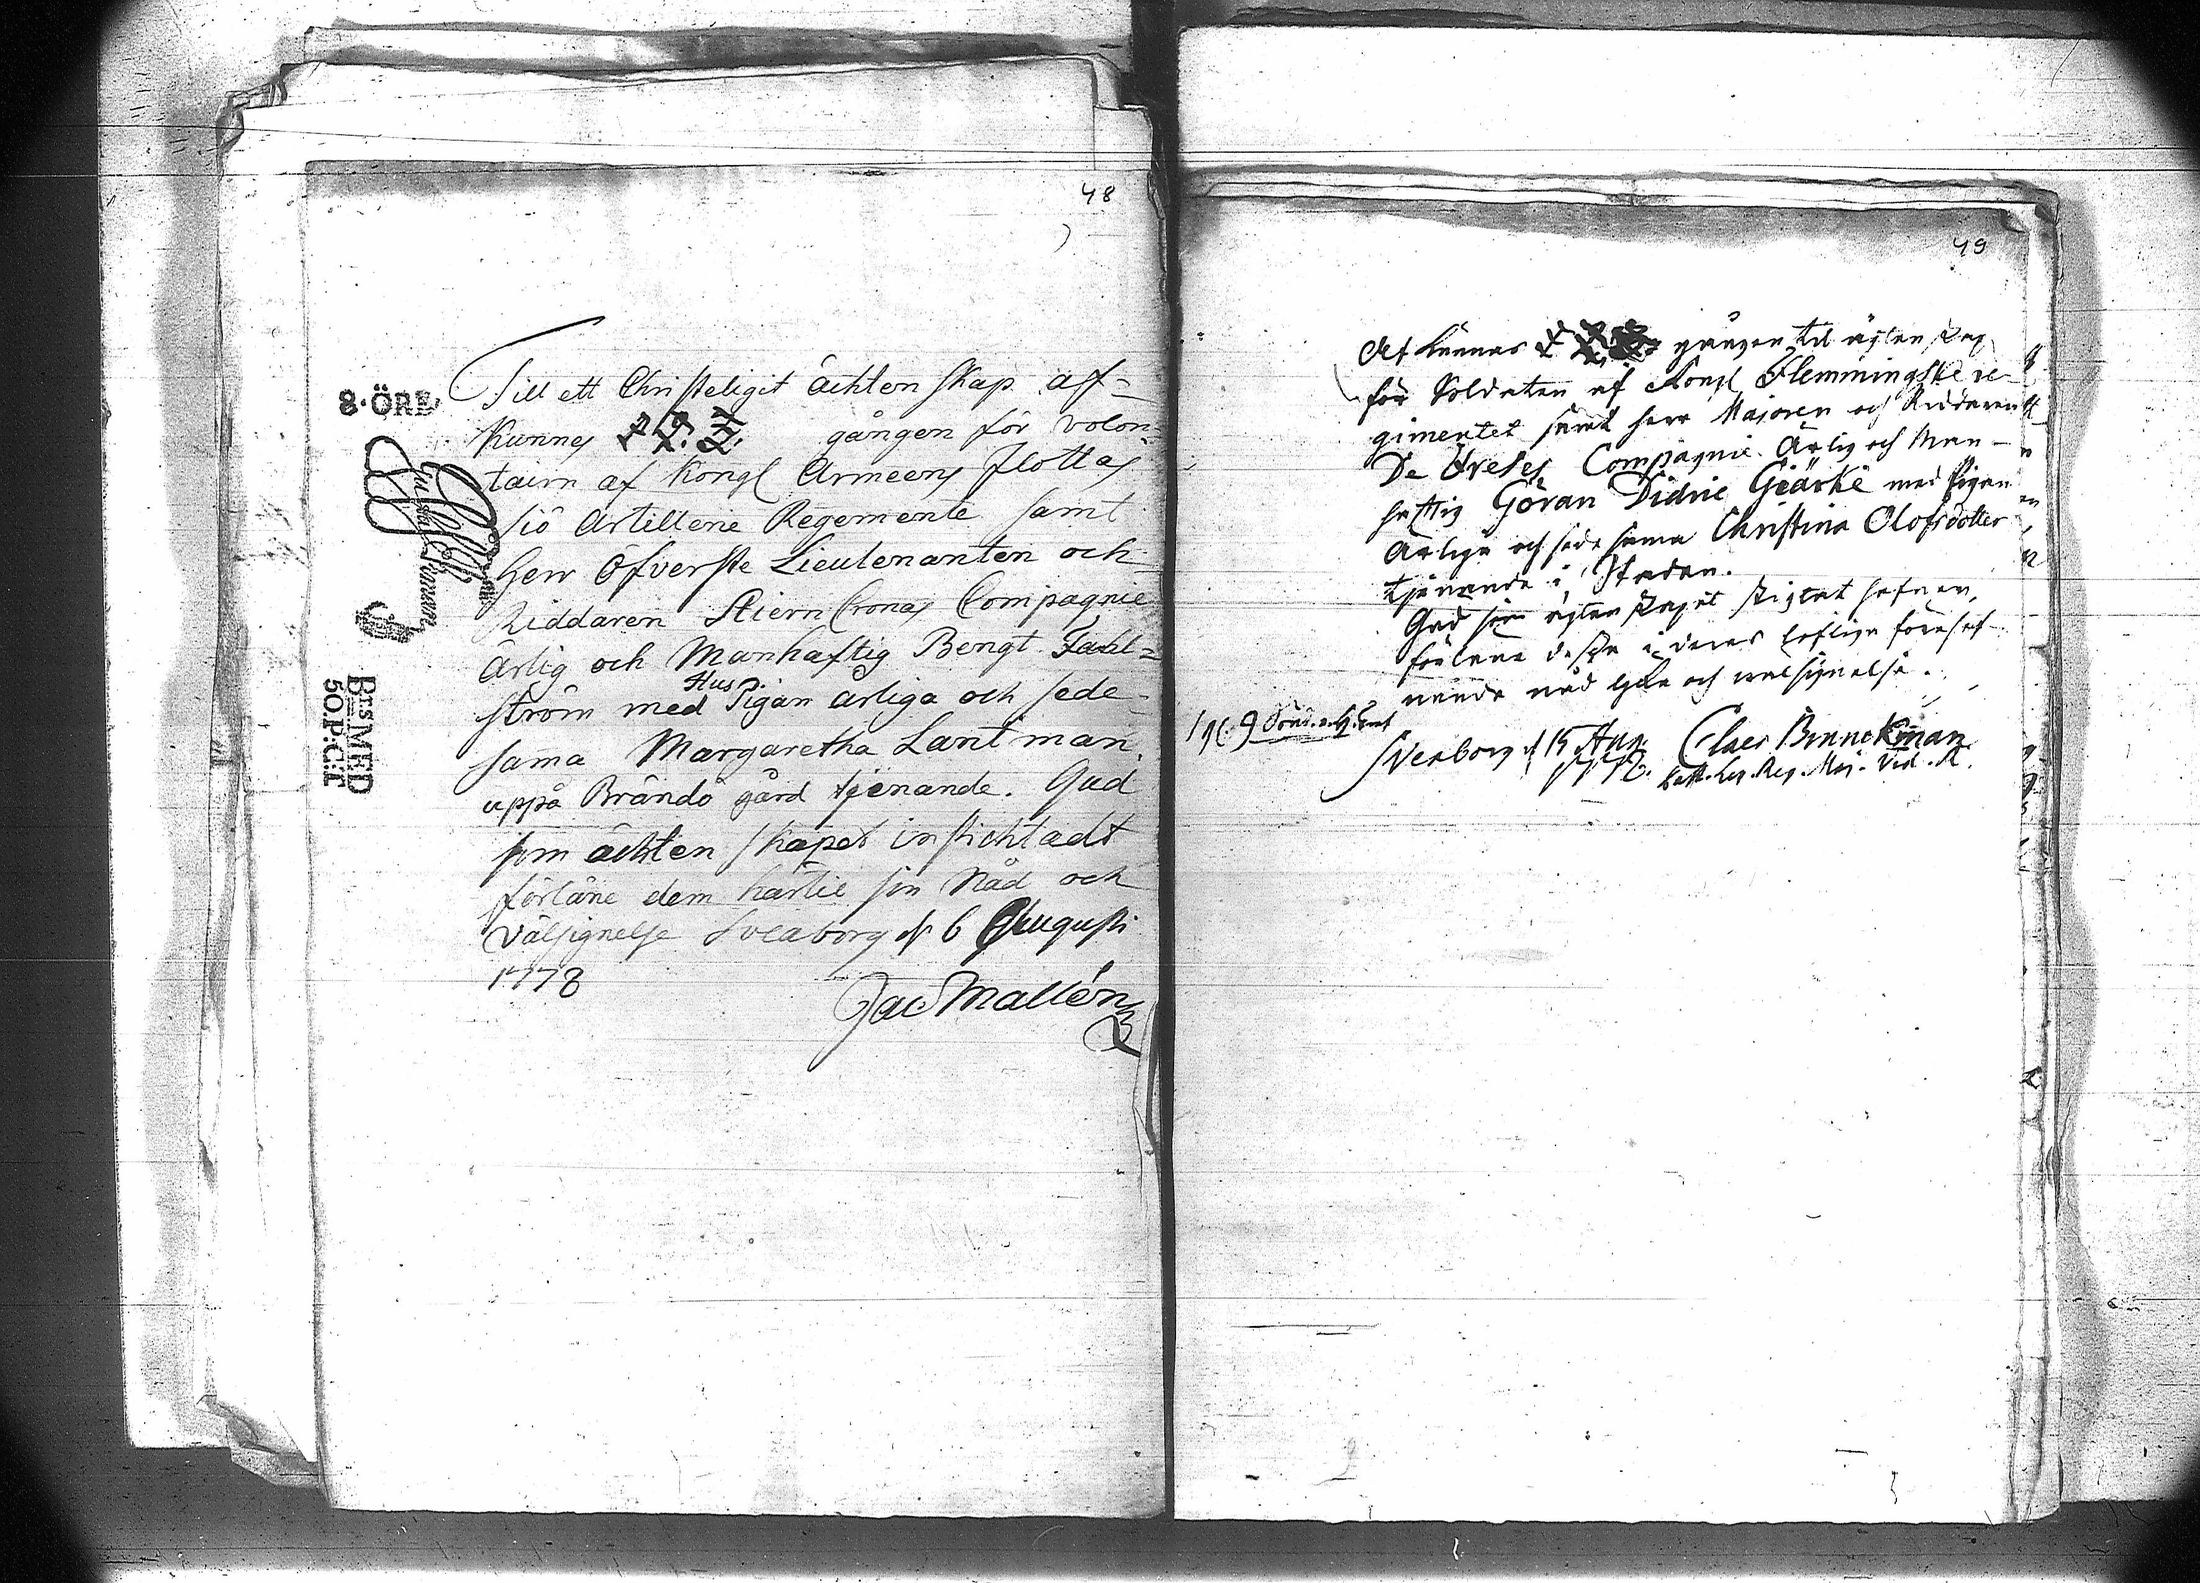 48
8·ÖRE
BTSMED
50.P:C:T
Till ett Christeligit ächtenskap af=
kunnes 1. 2. 3. gången för volon=
tairn af Kongl Armeens flottas
siö Artillerie Regemente samt
herr Öfverste Lieutenanten och
Riddaren StiernCronas Compagnie
ärlig och Manhaftig Bengt Fahl=
ström med Hus Pigan ärliga och sede=
sama Margaretha Lantman
uppå Brändö gård tjenande. Gud
som ächtenskapet instichtadt
förläne dem härtil sin Nåd och
välsignelse Sveaborg d 6 Augusti
1778
Jac Mallén
49
Af kunnas gången til ägtenskap
för Soldaten af Kongl Flemmingske re-
gimentet samt herr Majoren och Riddaren
De Breses Compagnie Ärlig och Man-
haftig Göran Didric Giärke med Pigan
Ärliga och sedesamma Christina Olofsdotter
tjänande i Staden.
Gud som ägtenskapet stigtat hafver,
förläne dessa i deras loflige förehaf-
vande nåd lycka och wälsignelse.
Sveaborg d 15 Aug. Claes Brunckman
1778. Batt. Reg. Maj. Vid. R.